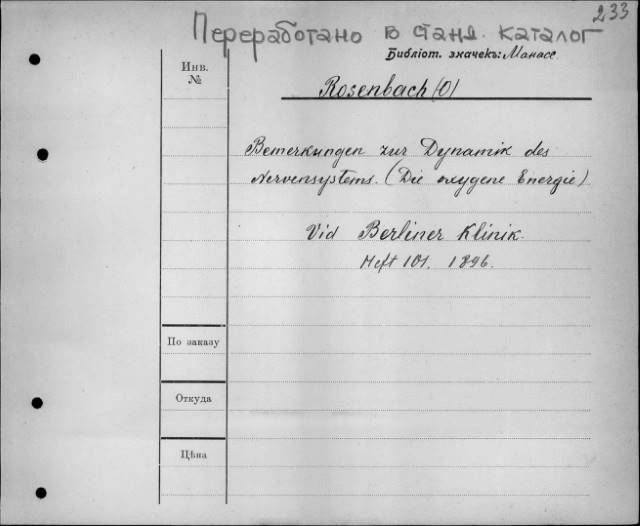 233
Переработано в станд. каталог
Библіот. значекъ: Манасс
Инв.
№
Rosenbach (O)
Bemerkungen zur Dynamik des
Nervensystems. (Die oxygene Energie)
Vid Berliner Klinik.
Heft 101. 1896.
По заказу
Откуда
Цѣна